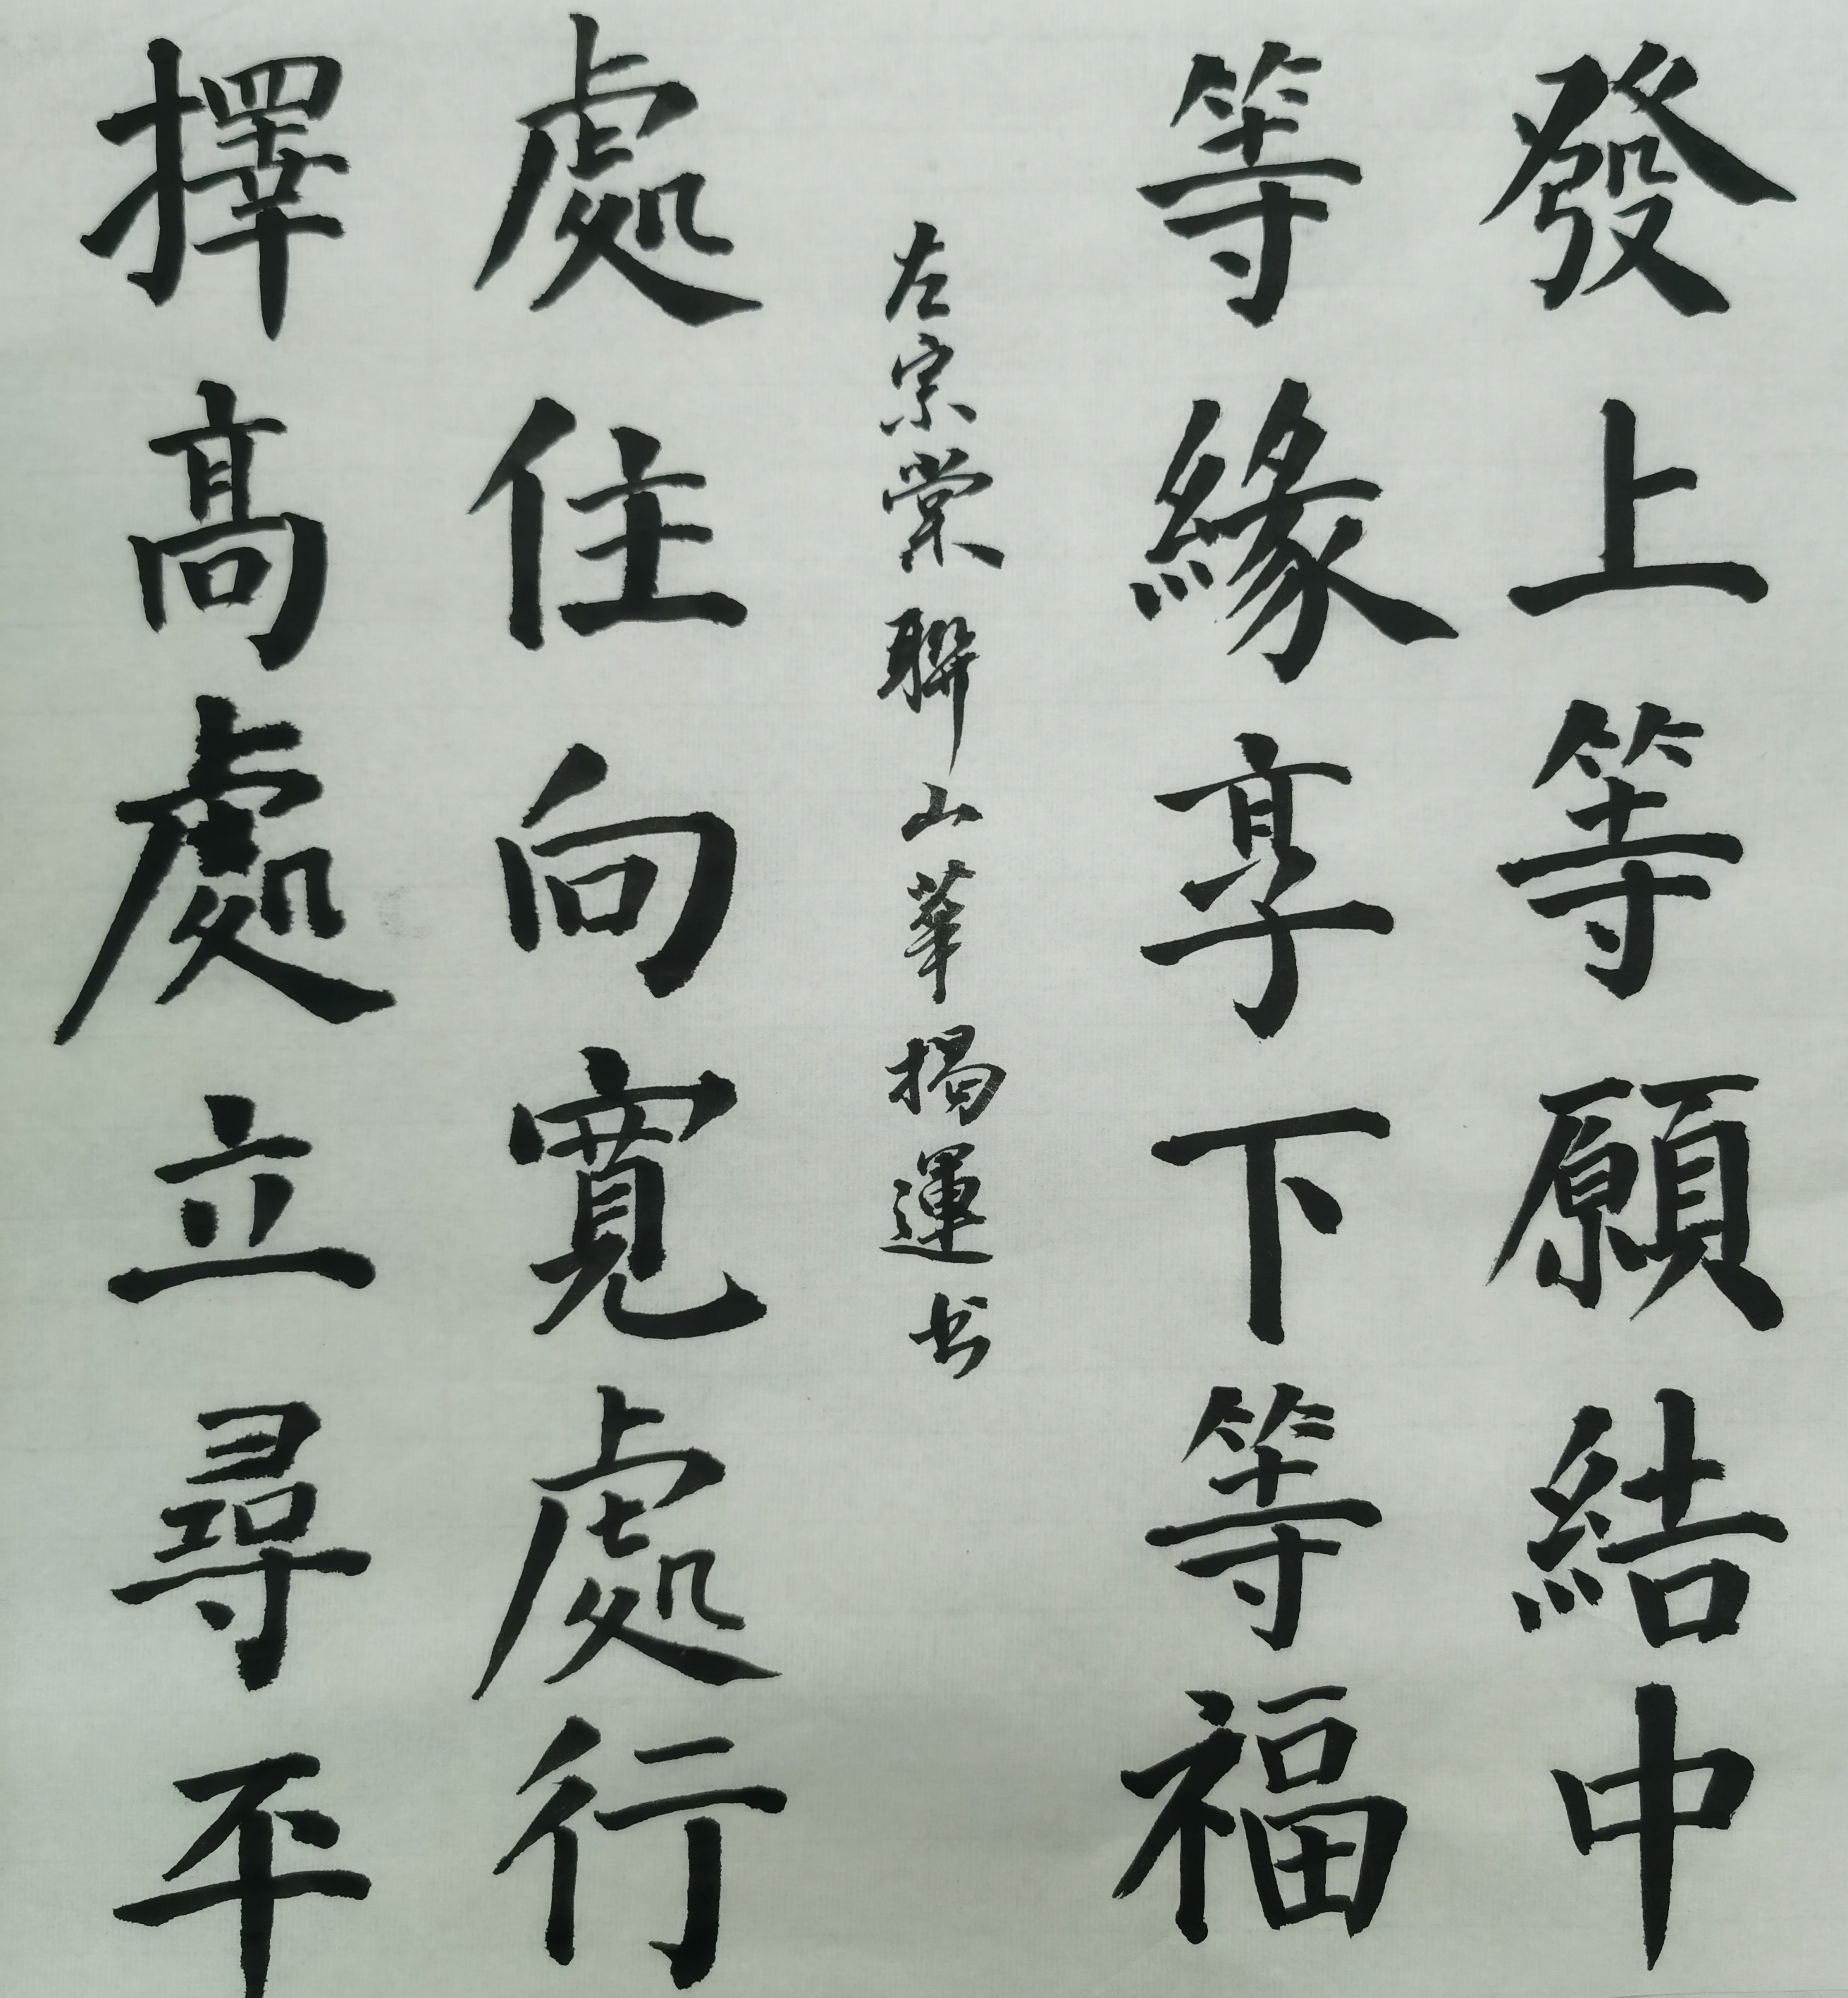 發上等願結中
等緣享下等福
擇高處立尋平
處住向寬處行
左宗棠聯山華楊運书